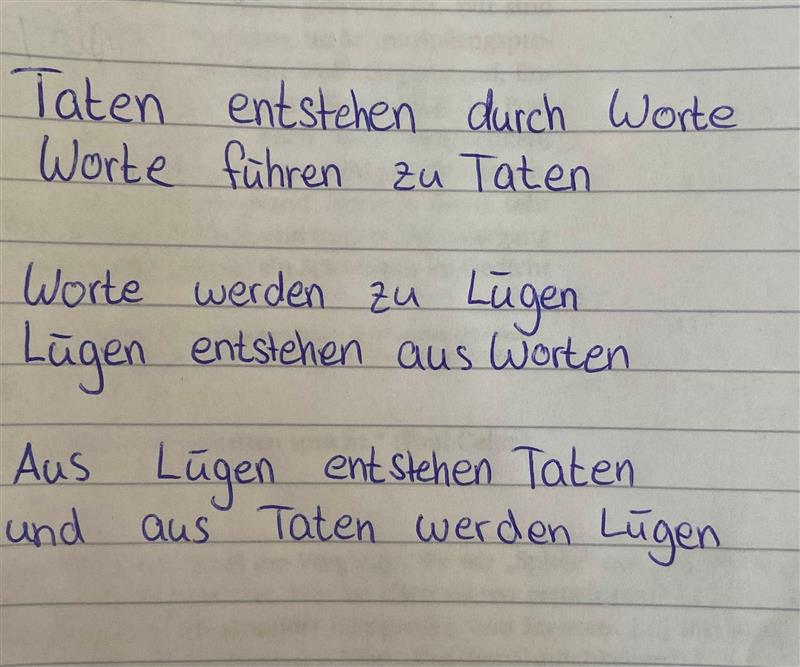 Taten entstehen durch Worte
Worte führen zu Taten
Worte werden zu Lügen
Lügen entstehen aus Worten
Aus Lügen entstehen Taten
und aus Taten werden Lügen